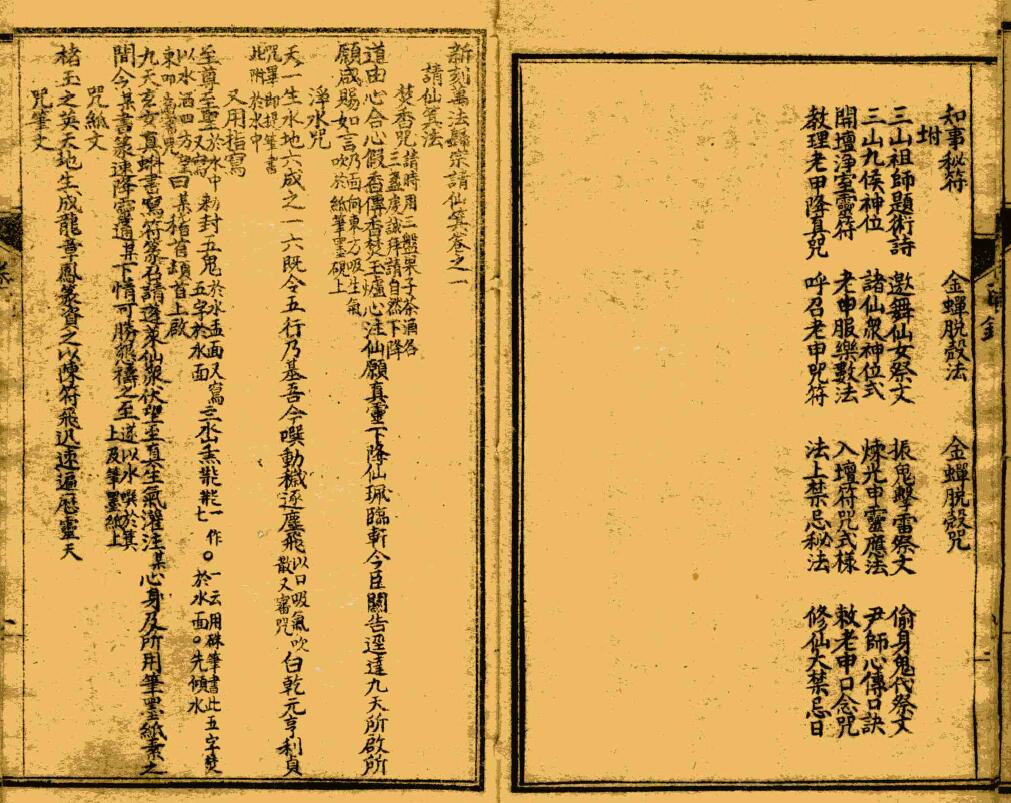 知事秘符 金蟬脫殼法 金蟬脫殼咒
坿
三山祖師題術詩 邀舞仙女祭文 振鬼擊雷祭文 偷身鬼代祭文
三山九侯神位 諸仙眾神位式 煉光申靈應法 尹師心傳口訣
開壇淨室靈符 老申服樂數法 入壇符咒式樣 敕老申口念咒
教理老甲降真咒 呼召老申咒符 法上禁忌秘法 修仙大禁忌日
新刻萬法歸宗請仙箕卷之一
請仙箕法
焚香咒 請時用三盤果子茶酒各三盞虔誠拜請自然下降
道由心合心假香傳香焚玉爐心注仙願真靈下降仙珮臨軒今臣關告逕達九天所啟所
願咸賜如言 乃面向東方吸生氣吹於紙筆墨硯上
淨水咒
天一生水地六成之一六既合五行乃基吾今噀動穢逐塵飛 以口吸氣吹散又審咒 白乾元亨利貞
咒畢即提筆書此附於水中
又用指寫
至尊至聖 於水中又寫 勅封五鬼 五字於水面 於水盂面又寫 一作 一云用硃筆書此五字焚於水面 先傾水
以水洒四方望東叩齒 咒曰某稽首頓首上啟
九天玄女真蝌書寫符篆召請蓬萊仙眾伏望至真生氣灌注某心身及所用筆墨紙素之
間令某書篆速降靈通某下情可勝懇禱之至 遂以水噀於箕上及筆墨紙上
咒紙文
楮玉之英天地生成龍章鳳篆資之以陳符飛迅速遍歷靈天
咒筆文